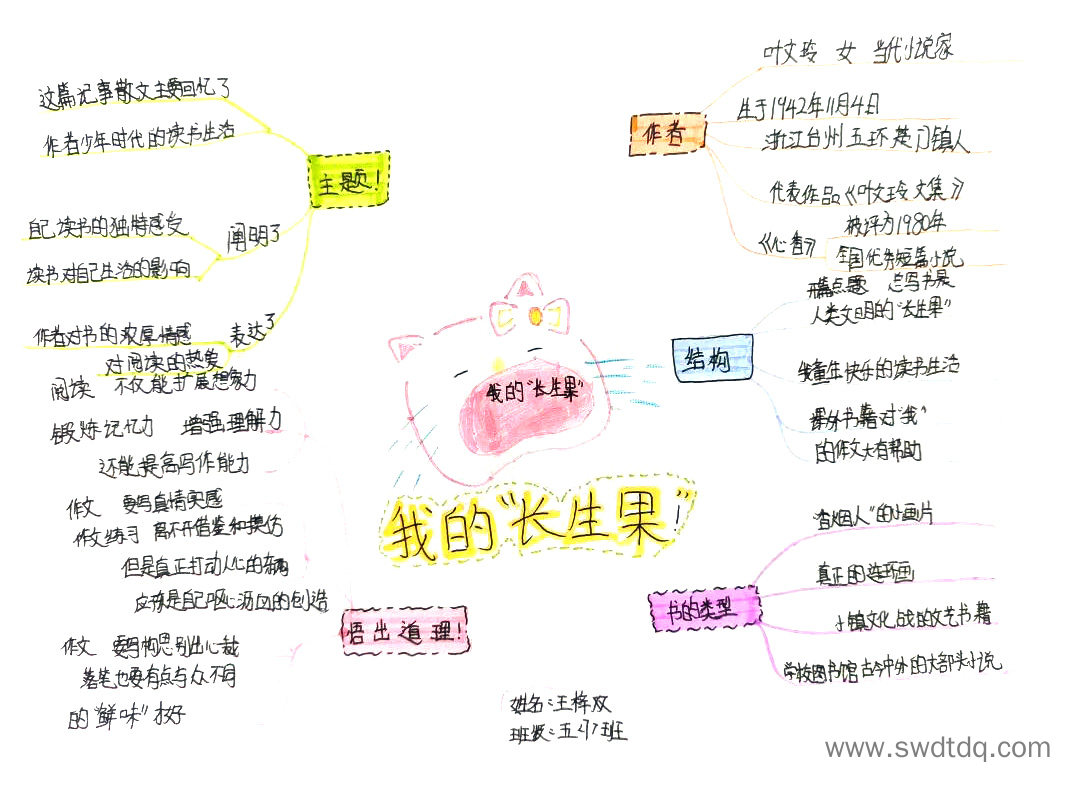 叶文玲 女 当代小说家
生于1942年11月4日
作者
浙江台州五环楚门镇人
代表作品《叶文玲文集》
《心香》 被评为1980年
全国优秀短篇小说
这篇记事散文主要回忆了
作者少年时代的读书生活
主题!
自己读书的独特感受
阐明了
读书对自己生活的影响
作者对书的浓厚情感
表达了
对阅读的热爱
我的"长生果"
我的"长生果"!
开篇点题 总写书是
人类文明的"长生果"
结构
童年快乐的读书生活
课外书籍对"我"
的作文大有帮助
阅读 不仅能扩展想象力
锻炼记忆力 增强理解力
还能提高写作能力
作文 要写真情实感
作文练习 离不开借鉴和模仿
但是真正打动人心的东西
应该是自己呕心沥血的创造
悟出道理!
作文 要写构思别出心裁
落笔也要有点与众不同
的"鲜味"才好
"香烟人"的小画片
真正的连环画
书的类型
小镇文化站的文艺书籍
学校图书馆古今中外的大部头小说
姓名:王梓
班级:五<1>班
www.swdtdq.com